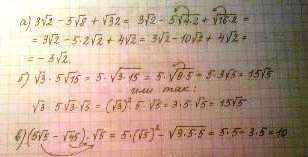 а) 3√2 - 5√8 + √32 = 3√2 - 5√4·2 + √16·2 =
= 3√2 - 5·2√2 + 4√2 = 3√2 - 10√2 + 4√2 =
= -3√2.
б) √3 · 5√15 = 5·√3·15 = 5·√9·5 = 5·3√5 = 15√5
или так:
√3 · 5√3·√5 = (√3)²·5·√5 = 3·5·√5 = 15√5
в) (5√5 - √45)·√5 = 5·(√5)² - √9·5·5 = 5·5 - 3·5 = 10